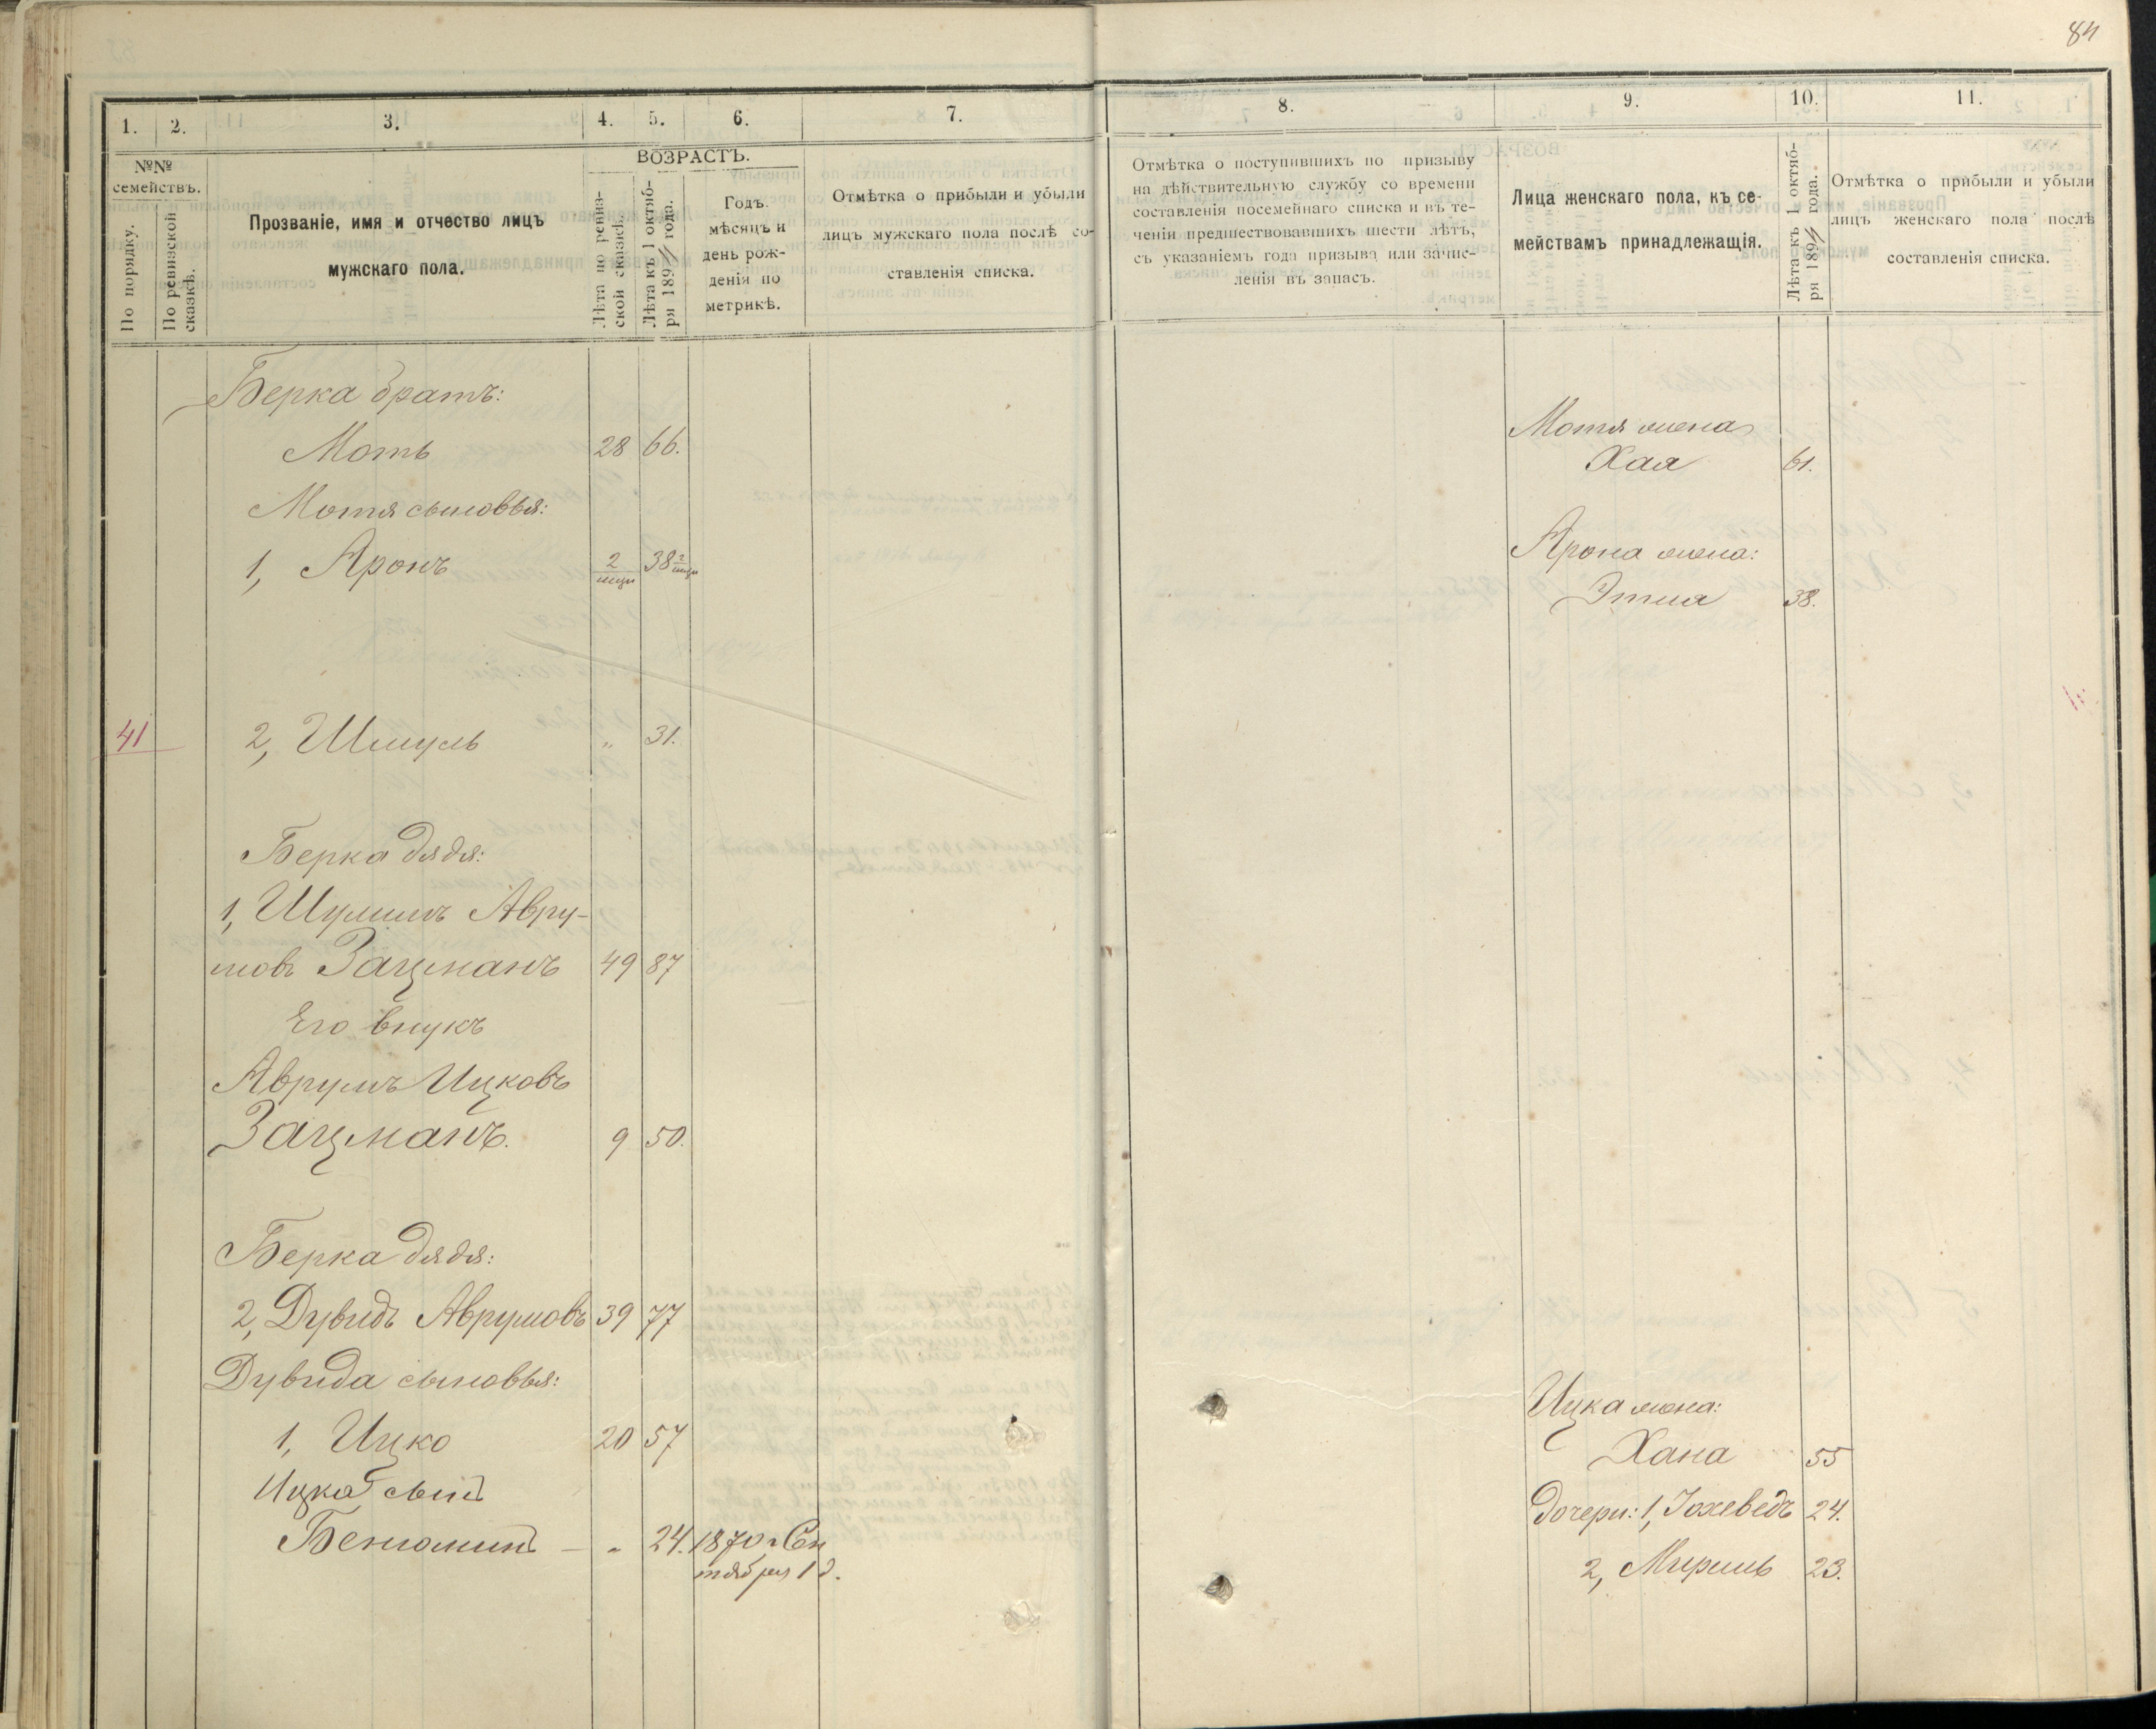 84
1.
2.
3.
4.
5.
6.
7.
8.
9.
10.
11.
№№ семействъ.
По порядку.
По ревизской сказкѣ.
Прозваніе, имя и отчество лицъ
мужскаго пола.
ВОЗРАСТЪ.
Лѣта по ревиз-
ской сказкѣ.
Лѣта къ 1 октяб-
ря 1894 года.
Годъ,
мѣсяцъ и
день рож-
денія по
метрикѣ.
Отмѣтка о прибыли и убыли
лицъ мужскаго пола послѣ со-
ставленія списка.
Отмѣтка о поступившихъ по призыву
на дѣйствительную службу со времени
составленія посемейнаго списка и въ те-
ченіи предшествовавшихъ шести лѣтъ,
съ указаніемъ года призыва или зачис-
ленія въ запасъ.
Лица женскаго пола, къ се-
мействамъ принадлежащія.
Лѣта къ 1 октяб-
ря 1894 года.
Отмѣтка о прибыли и убыли
лицъ женскаго пола послѣ
составленія списка.
Берка братъ:
Моть 28 66.
Мотя сыновья:
1, Аронъ 2/мцы 38 2/мцы
41 2, Шмуль „ 31.
Берка дядя:
1, Шулимъ Авру-
мовъ Зацманъ 49 87
Его внукъ
Аврумъ Ицковъ
Зацманъ. 9 50.
Берка дядя:
2, Дувидъ Аврумовъ 39 77
Дувида сыновья:
1, Ицко 20 57
Ицка сынъ
Бенюминъ — „ 24. 1870 г Сен
тября 1 д.
Мотя жена
Хая 61.
Арона жена:
Этля 38.
Ицка жена:
Хана 55
дочери: 1, Іохеведъ 24.
2, Мириль 23.